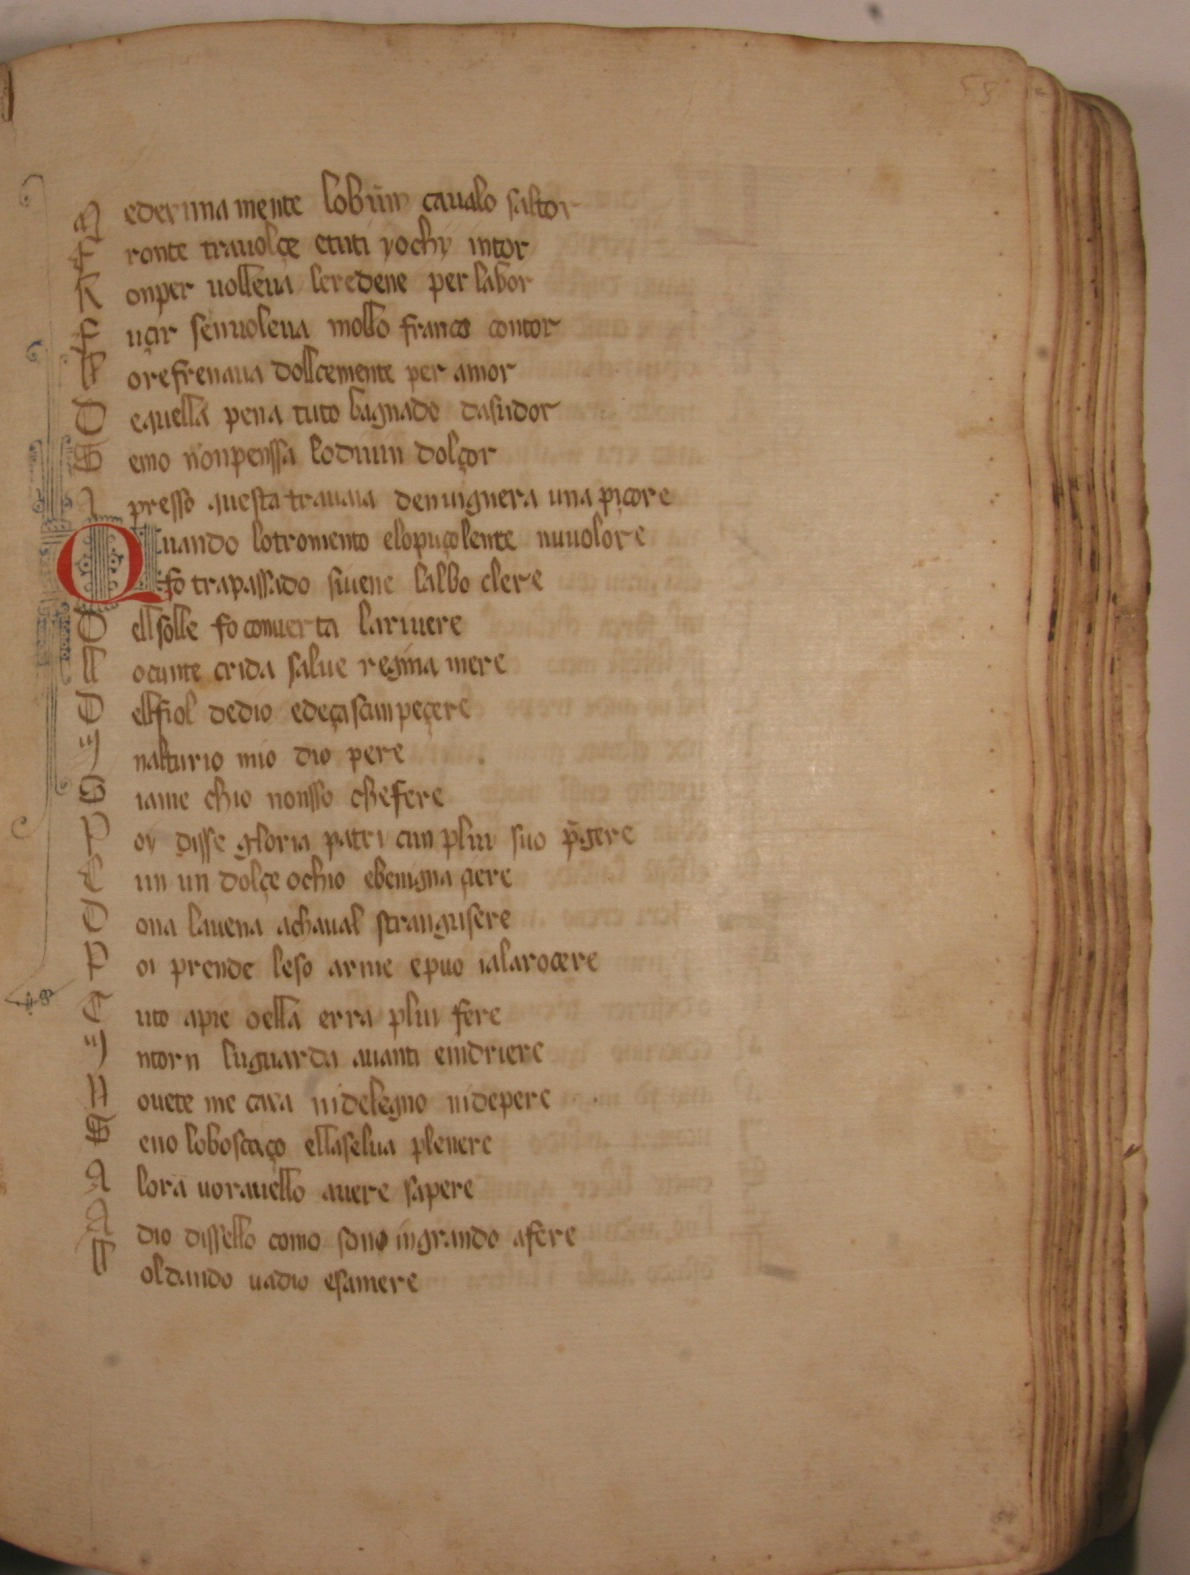 58
M ederinna mente lobium cavalo saltor
F ronte travolçe etuti yochy intor
R onper volleva leredene per labor
F uçir senvoleva mollo franco contor
L orefrenava dollcemente per amor
D equella pena tuto bagnado dasudor
S emo nonpenssa lodium dolçor
A presso questa travaia denvignera una piçore
Quando lotromento elopuçolente nuvolore
fo trapassado sivene lalbo clere
D ell solle fo converta larivere
L ocunte crida salve regina mere
D ell fiol dedio edeçascun peçere
I nalturio mio dio pere
S iame chio nonsso chefere
P oy disse gloria patri cun plui suo p̄gere
C un un dolçe ochio ebenigna çere
D ona lavena achaval strangisere
P oi prende leso arme epuo ialarocere
T uto apie oella erra plui fere
I ntorn luguarda avanti eindriere
N ovete me cara nidelegno nidepere
S eno loboscaço ellaselva plenere
A lora voravello avere sapere
A dio dissello como sono ingrando afere
L oldando vadio esamere